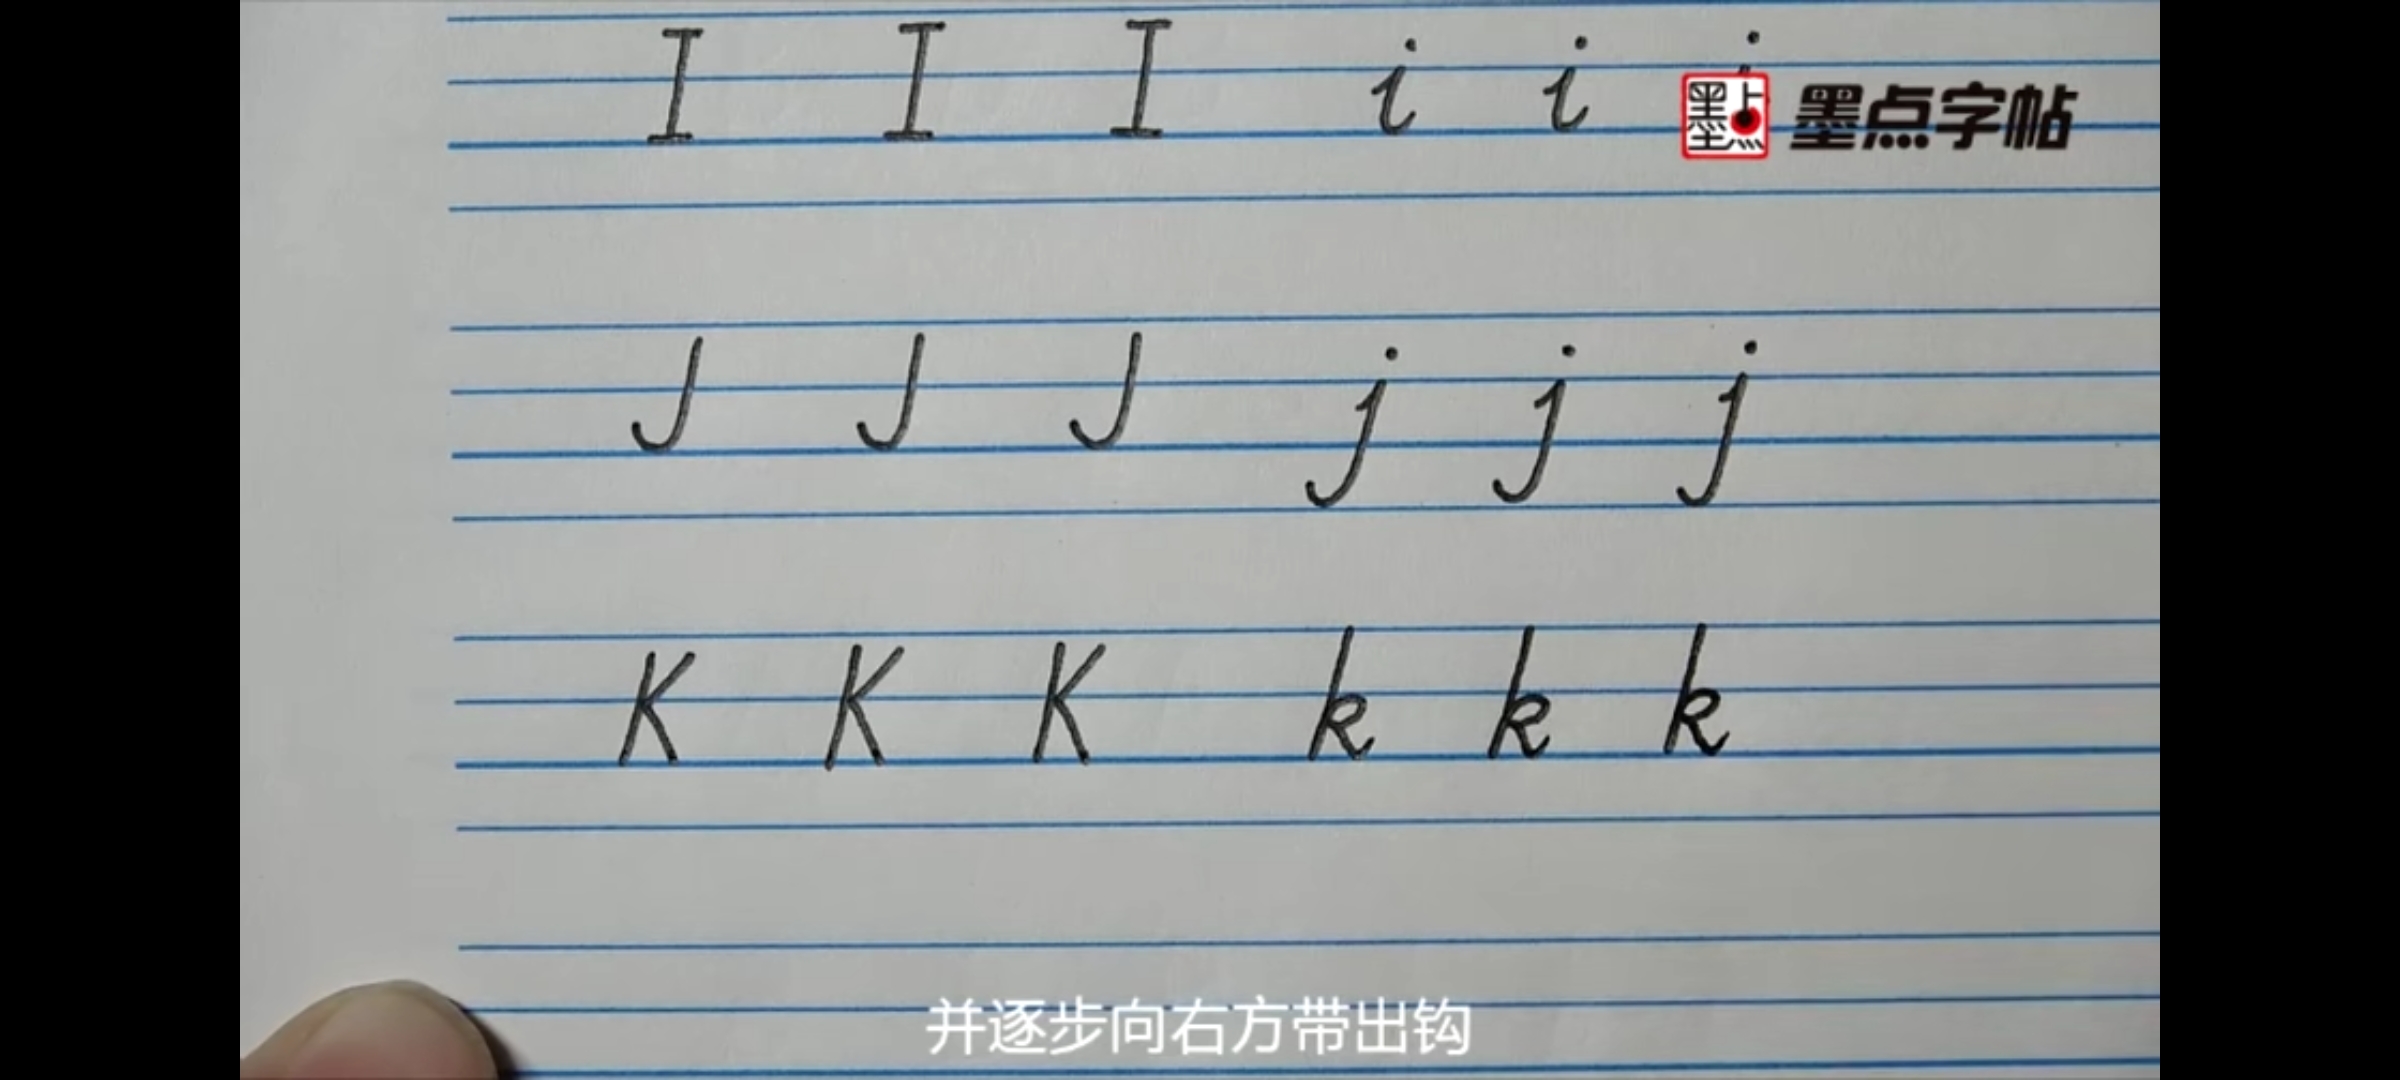 I I I i i i
墨点 墨点字帖
J J J j j j
K K K k k k
并逐步向右方带出钩